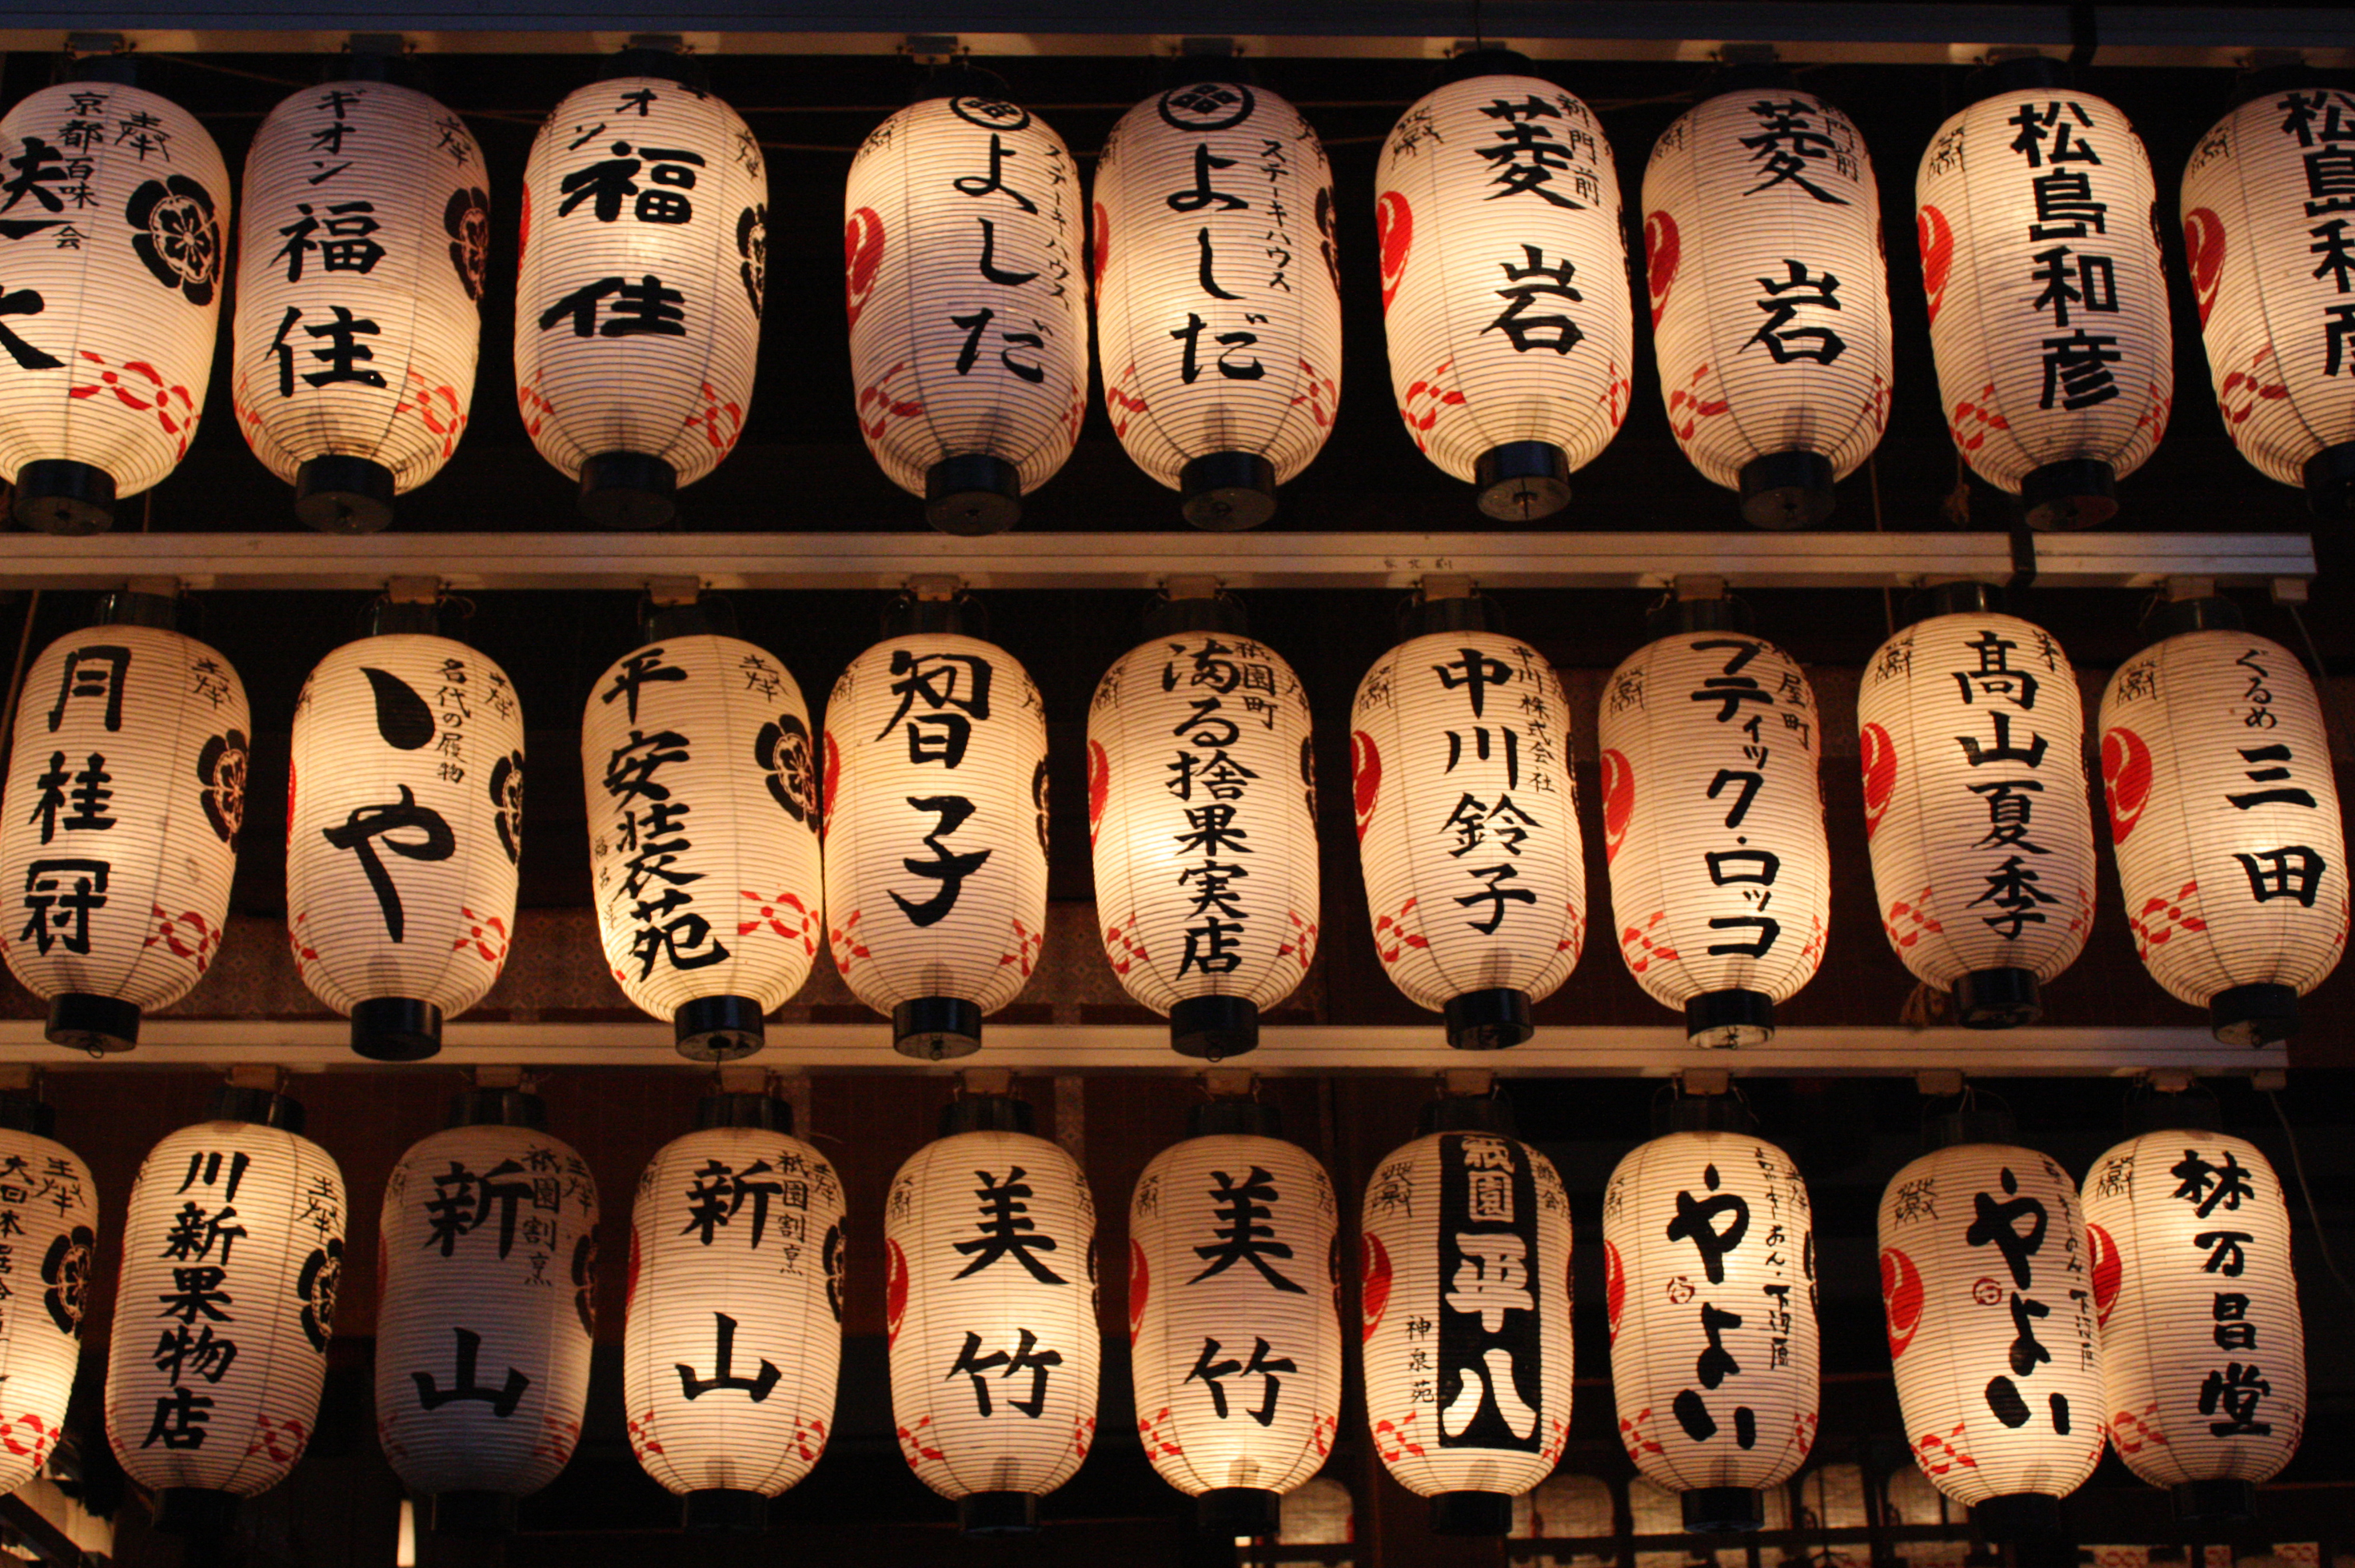 奉
京都百味会
ギオン
福住
奉
オン
福住
奉
ステーキハウス
よしだ
ステーキハウス
よしだ
新門前
菱岩
新門前
菱岩
松島和彦
松島和
月桂冠
奉
名代の履物
奉
や
平安装苑
奉
智子
祇園町
満る捨果実店
中川株式会社
中川鈴子
屋町
ブティック・ロッコ
髙山夏季
ぐるめ
三田
大日本
奉
川新果物店
奉
祇園割烹
新山
奉
祇園割烹
新山
奉
美竹
美竹
祇園平八
神泉苑
やよい
やよい
林万昌堂